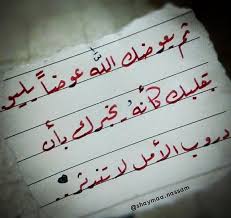 ثم يعوضك اللّٰه عوضاً يليق
بقلبك كأنهُ يخبرك بأن
دروب الأمل لا تندثر..
@shaymaa.nassam